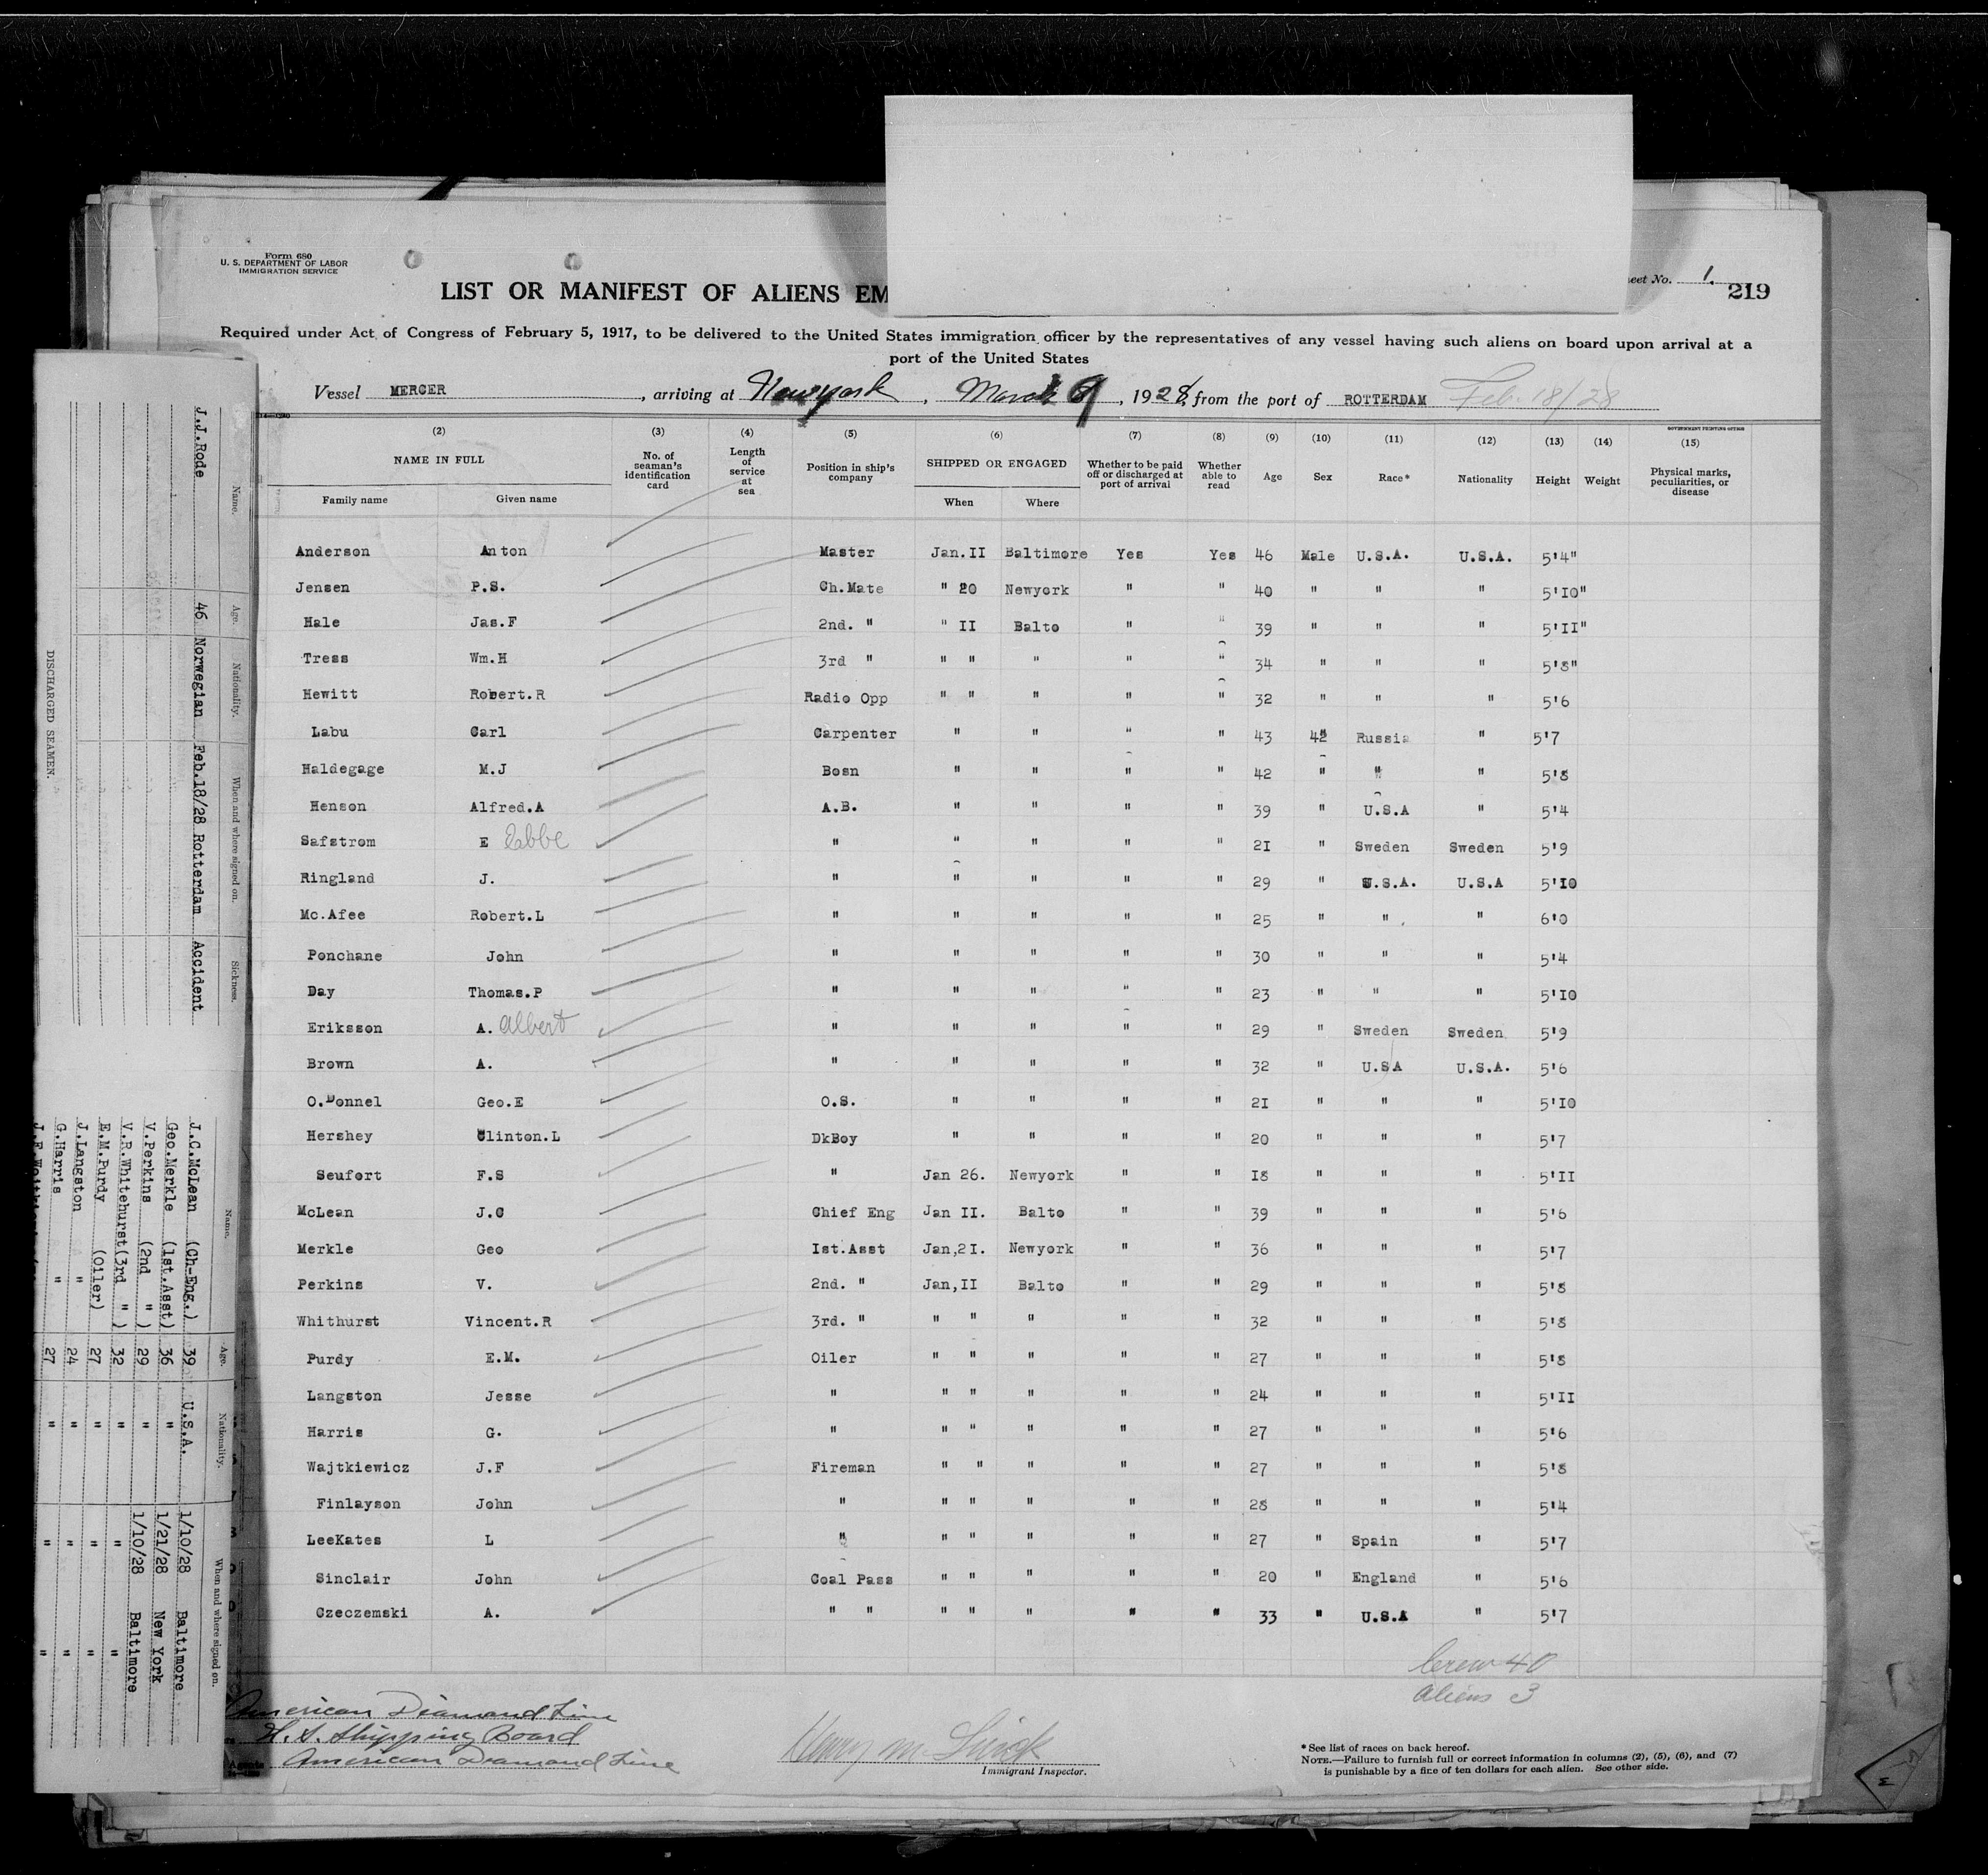 Form 680
U. S. DEPARTMENT OF LABOR
IMMIGRATION SERVICE
LIST OR MANIFEST OF ALIENS EM
eet No. 1.
219
Required under Act of Congress of February 5, 1917, to be delivered to the United States immigration officer by the representatives of any vessel having such aliens on board upon arrival at a
port of the United States
Vessel MERCER , arriving at Newyork , March , 1928, from the port of ROTTERDAM Feb. 18/28
GOVERNMENT PRINTING OFFICE
(2) (3) (4) (5) (6) (7) (8) (9) (10) (11) (12) (13) (14) (15)
NAME IN FULL No. of seaman's identification card Length of service at sea Position in ship's company SHIPPED OR ENGAGED Whether to be paid off or discharged at port of arrival Whether able to read Age Sex Race* Nationality Height Weight Physical marks, peculiarities, or disease
Family name Given name When Where
Anderson Anton Master Jan.II Baltimore Yes Yes 46 Male U.S.A. U.S.A. 5'4"
Jensen P.S. Ch.Mate " 20 Newyork " " 40 " " " 5'IO"
Hale Jas.F 2nd. " " II Balto " " 39 " " " 5'II"
Tress Wm.H 3rd " " " " " " 34 " " " 5'8"
Hewitt Robert.R Radio Opp " " " " " 32 " " " 5'6
Labu Carl Carpenter " " " " 43 42 Russia " 5'7
Haldegage M.J Bosn " " " " 42 " " " 5'8
Henson Alfred.A A.B. " " " " 39 " U.S.A " 5'4
Safstrom E Ebbe " " " " " 2I " Sweden Sweden 5'9
Ringland J. " " " " " 29 " U.S.A. U.S.A 5'IO
Mc.Afee Robert.L " " " " " 25 " " " 6'0
Ponchane John " " " " " 30 " " " 5'4
Day Thomas.P " " " " " 23 " " " 5'IO
Eriksson A. Albert " " " " " 29 " Sweden Sweden 5'9
Brown A. " " " " " 32 " U.S.A U.S.A. 5'6
O.Donnel Geo.E O.S. " " " " 2I " " " 5'IO
Hershey Clinton.L DkBoy " " " " 20 " " " 5'7
Seufert F.S " Jan 26. Newyork " " I8 " " " 5'II
McLean J.C Chief Eng Jan II. Balto " " 39 " " " 5'6
Merkle Geo Ist.Asst Jan,2I. Newyork " " 36 " " " 5'7
Perkins V. 2nd. " Jan,II Balto " " 29 " " " 5'8
Whithurst Vincent.R 3rd. " " " " " " 32 " " " 5'8
Purdy E.M. Oiler " " " " " 27 " " " 5'8
Langston Jesse " " " " " " 24 " " " 5'II
Harris G. " " " " " " 27 " " " 5'6
Wajtkiewicz J.F Fireman " " " " " 27 " " " 5'8
Finlayson John " " " " " " 28 " " " 5'4
LeeKates L " " " " " " 27 " Spain " 5'7
Sinclair John Coal Pass " " " " " 20 " England " 5'6
Czeczemski A. " " " " " " " 33 " U.S.A " 5'7
Crew 40
Aliens 3
American Diamond Line
U. S. Shipping Board
Agents American Diamond Line
Henry M.
Immigrant Inspector.
*See list of races on back hereof.
NOTE.—Failure to furnish full or correct information in columns (2), (5), (6), and (7)
is punishable by a fine of ten dollars for each alien. See other side.
DISCHARGED SEAMEN.
Name. Age. Nationality. When and where signed on. Sickness.
J.J.Rode 46 Norwegian Feb.18/28 Rotterdam Accident
Name. Age. Nationality. When and where signed on.
J.C.McLean (Ch-Eng.) 39 U.S.A. 1/10/28 Baltimore
Geo.Merkle (1st.Asst) 36 " 1/21/28 New York
V.Perkins (2nd " ) 29 " 1/10/28 Baltimore
V.R.Whitehurst(3rd " ) 32 " " "
E.M.Purdy (Oiler) 27 " " "
J.Langston " 24 " " "
G.Harris " 27 " " "